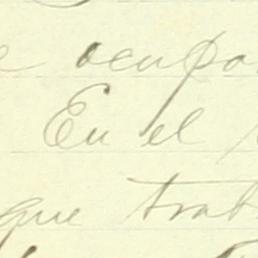 e ocupa
En el
que trab